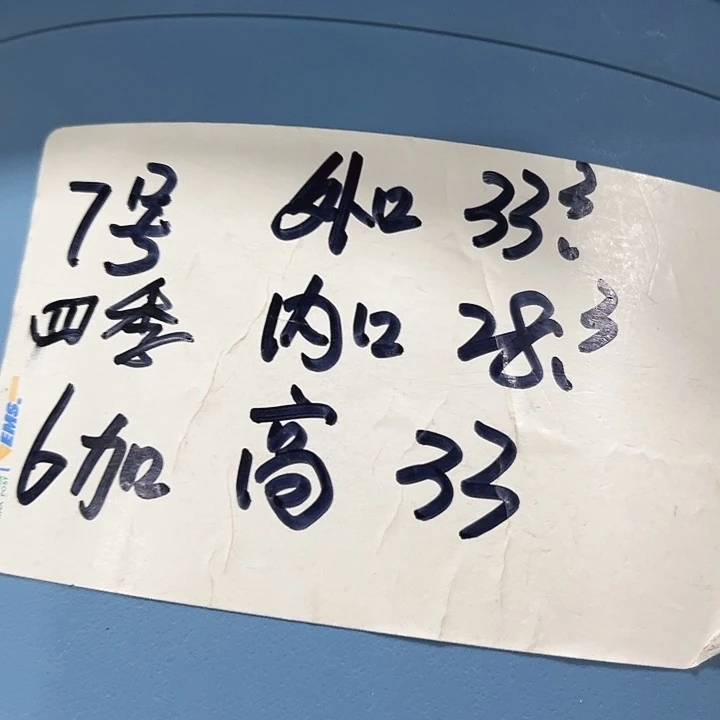 7号 外口 33.3
四季 内口 28.3
6加 高 33
EMS